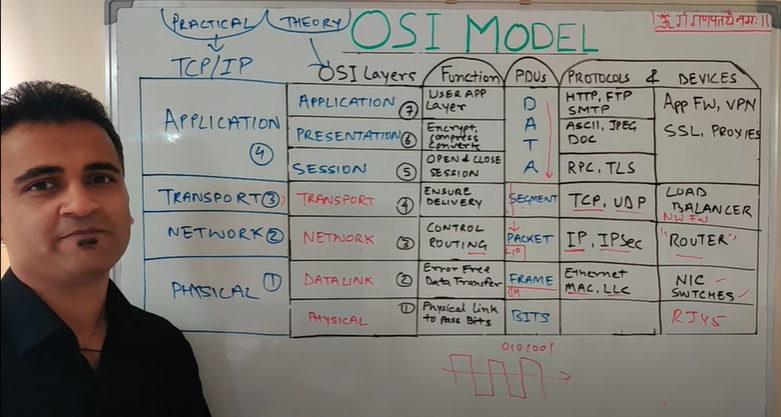 PRACTICAL
THEORY
OSI MODEL
ॐ गं गणपतये नमः ॥
TCP/IP
OSI Layers
Function
PDUs
PROTOCOLS & DEVICES
APPLICATION
4
APPLICATION 7
USER APP
Layer
D
A
T
A
HTTP, FTP
SMTP
App FW, VPN
SSL, PROXIES
PRESENTATION 6
Encrypt,
Compress
Converte
ASCII, JPEG
DOC
SESSION 5
OPEN & CLOSE
SESSION
RPC, TLS
TRANSPORT 3
TRANSPORT 4
ENSURE
DELIVERY
SEGMENT
TCP, UDP
LOAD
BALANCER
NW FW
NETWORK 2
NETWORK 3
CONTROL
ROUTING
PACKET
IP, IPSec
"ROUTER"
PHYSICAL 1
DATALINK 2
Error Free
Data Transfer
FRAME
Ethernet
MAC, LLC
NIC
SWTCHES
PHYSICAL 1
Physical Link
to pass Bits
BITS
RJ45
0101001